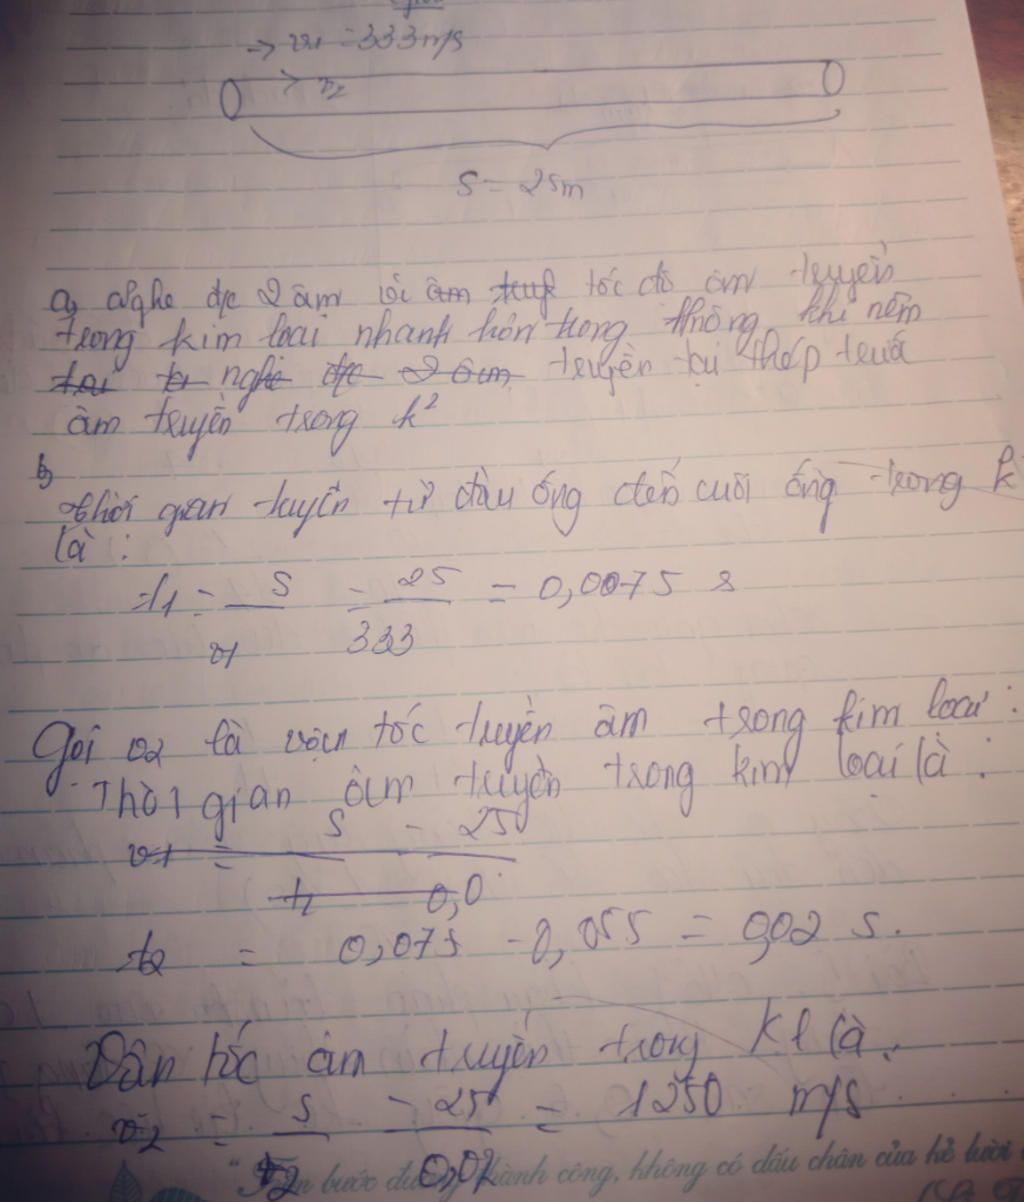 => v1 = 333 m/s
v2
S = 25m
a, Nghe đc 2 âm vì âm truy tốc độ âm truyền
trong kim loại nhanh hơn trong không khí nêm
truyền tại thép trướ
âm truyền trong k²
b,
thời gian truyền từ đầu ống đến cuối ống trong k
là :
t1 = S/v1 = 25/333 = 0,0075 s
Gọi v2 là vận tốc truyền âm trong kim loại :
Thời gian âm truyền trong kim loại là :
v1 = S/t2 = 25/0,0
t2 = 0,075 - 0,055 = 0,02 s.
Vân tốc âm truyền trong Kl là :
v2 = S/t2 = 25/0,02 = 1250 m/s
bước thành công, không có dấu chân của kẻ lười